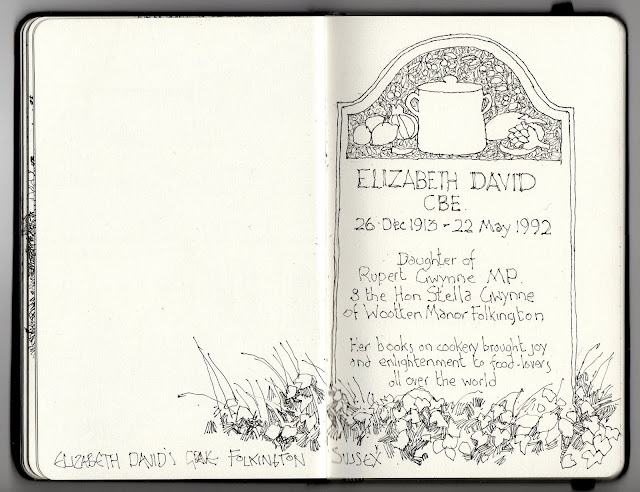 ELIZABETH DAVID
CBE.
26 Dec 1913 - 22 May 1992
Daughter of
Rupert Gwynne MP.
& the Hon Stella Gwynne
of Wootten Manor Folkington
Her books on cookery brought joy
and enlightenment to food-lovers
all over the world
ELIZABETH DAVID'S FOLKINGTON SUSSEX